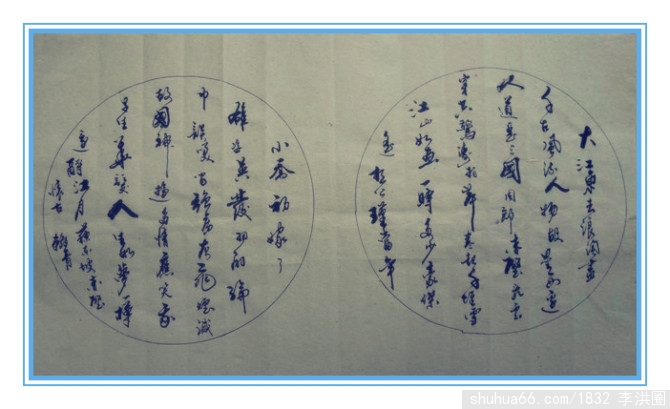 大江東去浪淘盡
千古風流人物故壘西邊
人道是三國周郎赤壁亂石
穿空驚濤拍岸卷起千堆雪
江山如画一時多少豪傑
遥想公瑾當年
小喬初嫁了
雄姿英發羽扇綸
巾談笑間強虜灰飛煙滅
故國神遊多情應笑我
早生華髮人生如夢一樽
還酹江月蘇東坡赤壁
懷古
shuhua66.com/1832 李洪園